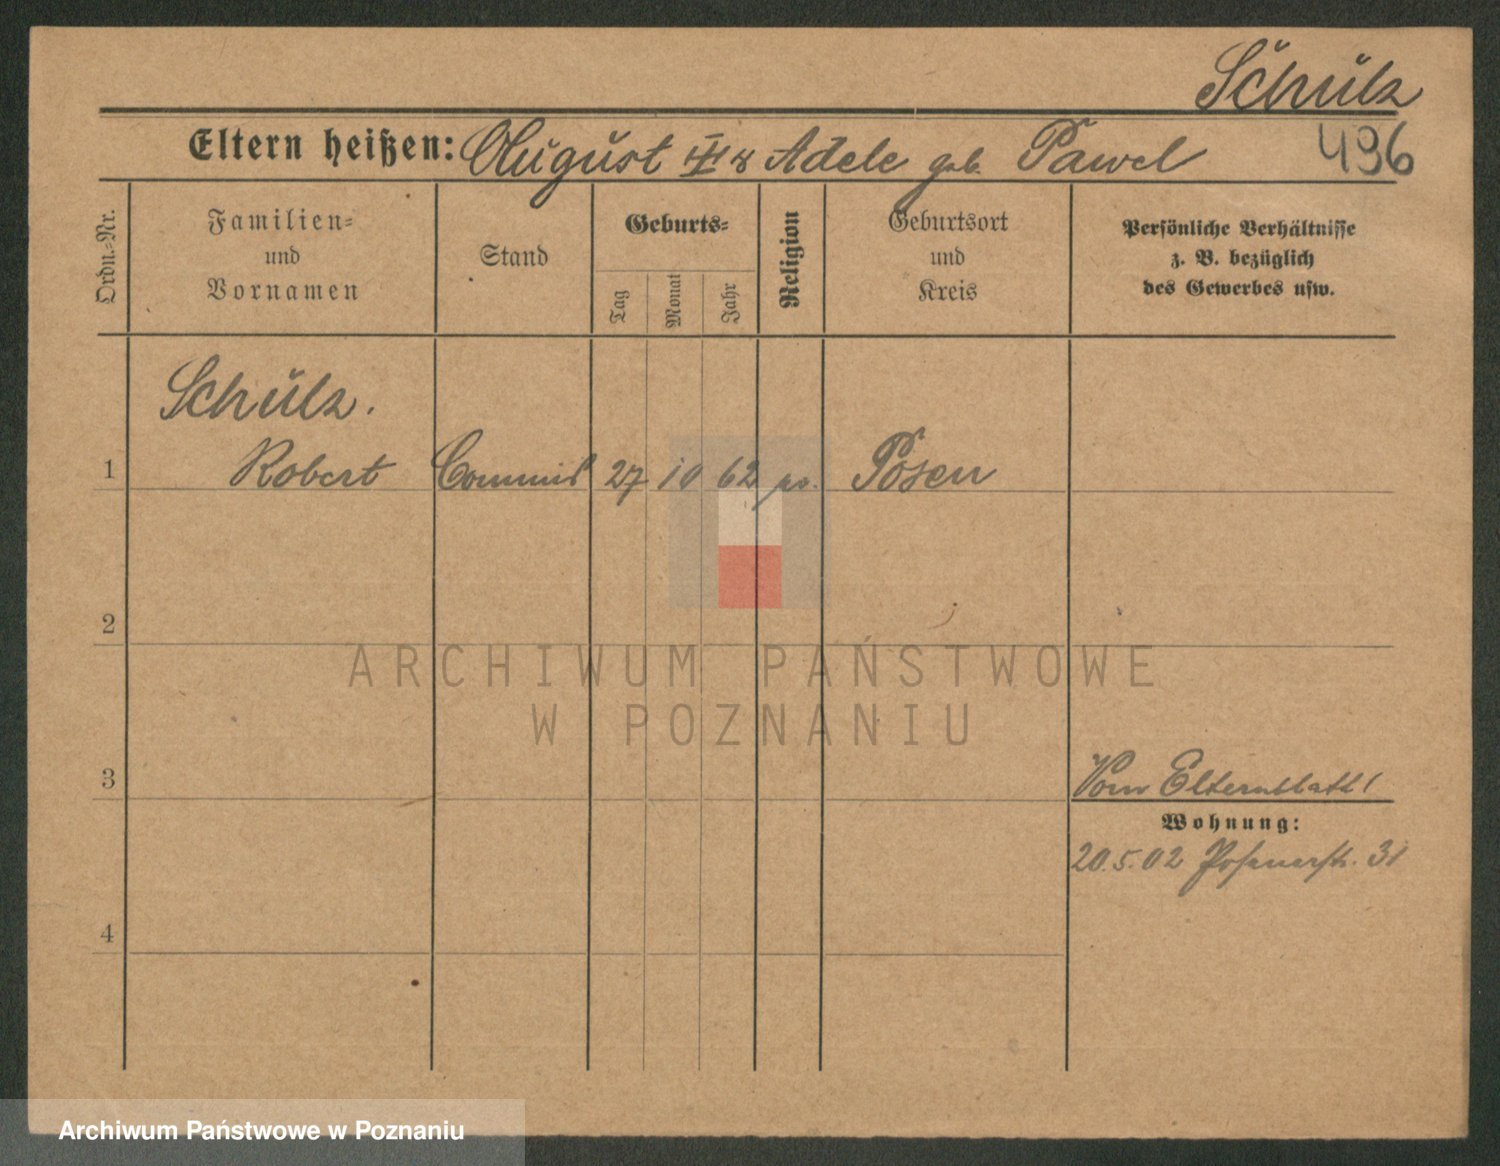 Schulz
Eltern heißen: August III & Adele geb. Pawel 496
Ordn.-Nr.
Familien-
und
Vornamen
Stand
Geburts-
Tag
Monat
Jahr
Religion
Geburtsort
und
Kreis
Persönliche Verhältnisse
z. B. bezüglich
des Gewerbes usw.
Schulz.
1 Robert Commis 27 10 62 Posen
2
ARCHIWUM PAŃSTWOWE
W POZNANIU
3 Vom Elternblatt!
Wohnung:
20.5.02 Posenerstr. 31
4
Archiwum Państwowe w Poznaniu